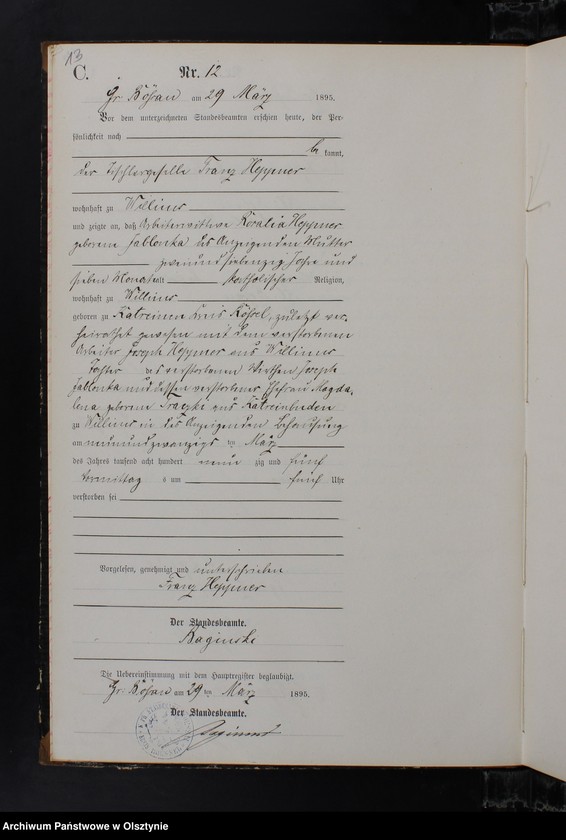 13
C.
Nr. 12
Gr. Bößau am 29 März 1895.
Vor dem unterzeichneten Standesbeamten erschien heute, der Per-
sönlichkeit nach
be kannt,
der Tischlergeselle Franz Heppner
wohnhaft zu Willims
und zeigte an, daß Arbeiterwittwe Rosalia Heppner
geborene Jablonka des Anzeigenden Mutter
zweiundsiebenzig Jahre und
sieben Monat alt katholischer Religion,
wohnhaft zu Willims
geboren zu Kreis Rößel, zuletzt ver-
heirathet gewesen mit dem verstorbenen
Arbeiter Joseph Heppner aus Willims
Tochter des verstorbenen Wirthen Joseph
Jablonka und dessen verstorbener Ehefrau Magda-
lena geborene aus
zu Willims in des Anzeigenden Behausung
am neunundzwanzigs ten März
des Jahres tausend acht hundert neun zig und fünf
Vormittag s um fünf Uhr
verstorben sei
Vorgelesen, genehmigt und unterschrieben
Franz Heppner
Der Standesbeamte.
Raginski
Die Uebereinstimmung mit dem Hauptregister beglaubigt.
Gr. Bößau am 29 ten März 1895.
Der Standesbeamte.
Archiwum Państwowe w Olsztynie